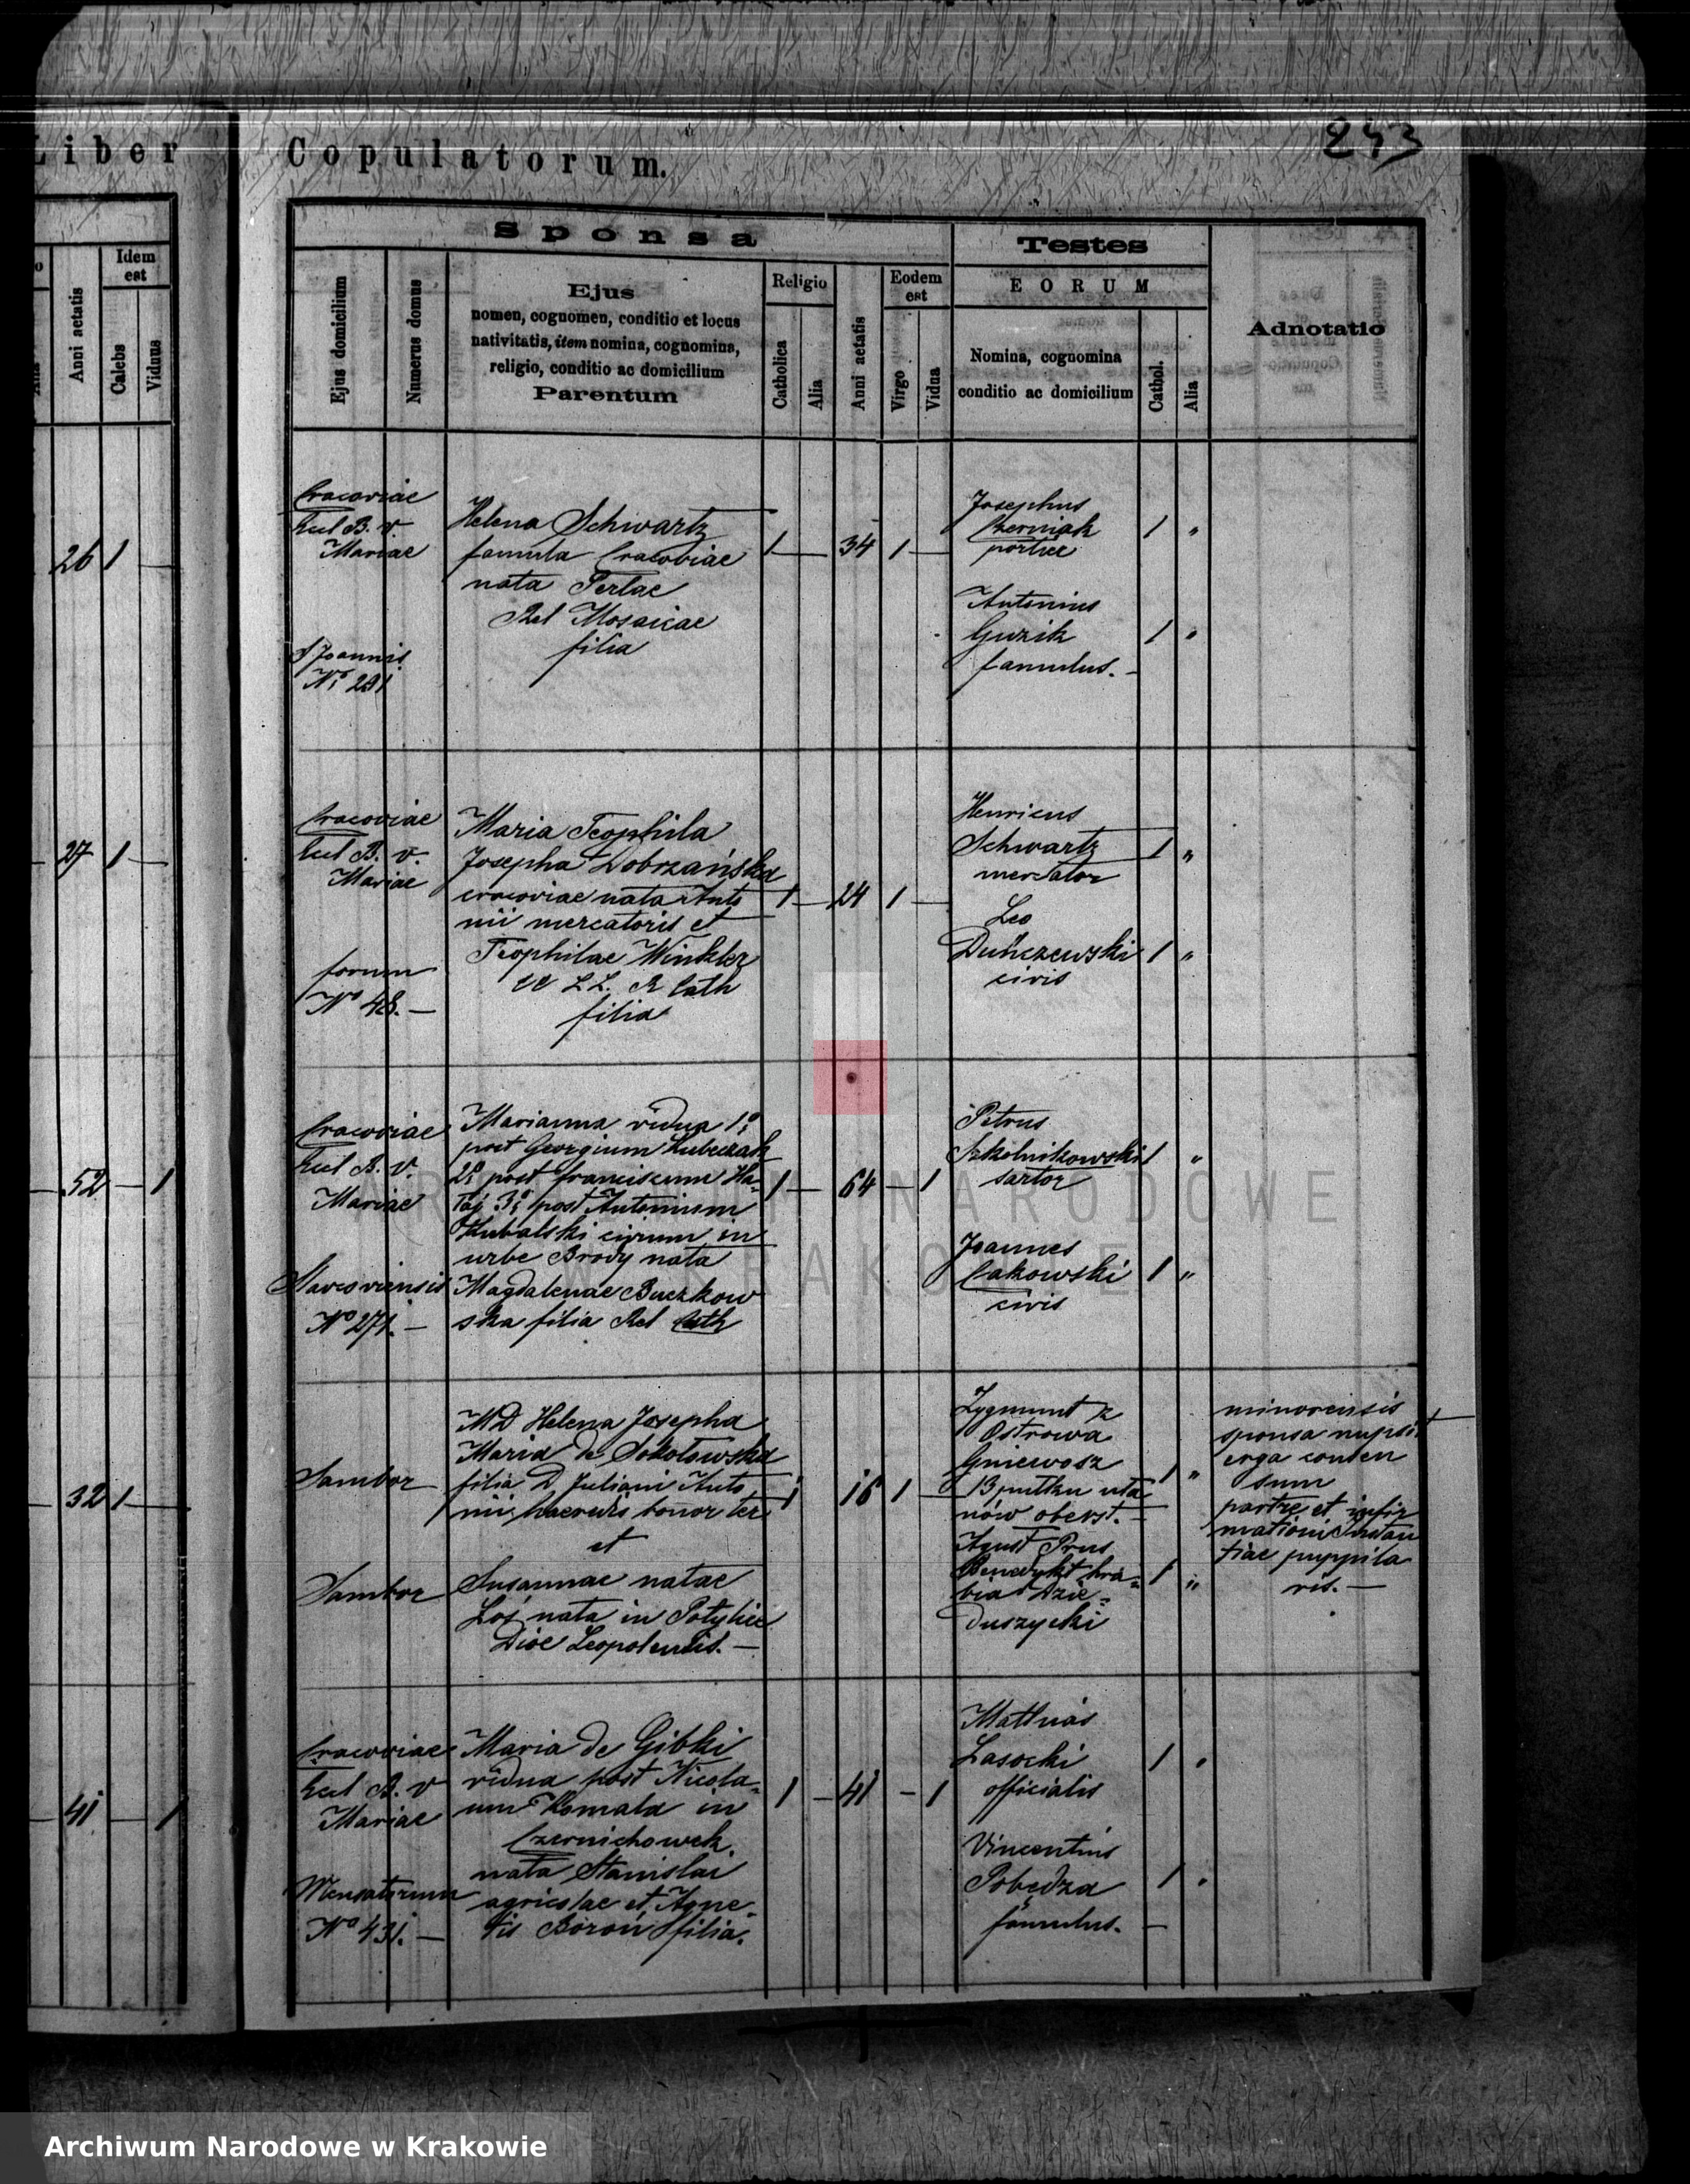 Liber
Copulatorum.
243
Anni aetatis
Idem est
Calebs
Viduus
26 1
27 1
52 1
32 1
41 1
Sponsa
Testes
Ejus domicilium
Numerus domus
Ejus
nomen, cognomen, conditio et locus
nativitatis, item nomina, cognomina,
religio, conditio ac domicilium
Parentum
Religio
Catholica
Alia
Anni aetatis
Eodem est
Virgo
Vidua
EORUM
Nomina, cognomina
conditio ac domicilium
Cathol.
Alia
Adnotatio
Cracoviae
Eccl B. V.
Mariae
S Joannis
No 291
Helena Schwartz
famula Cracoviae
nata Perlae
Rel Mosaicae
filia
1 34 1
Josephus
Czerniak
Antonius
Guzik
famulus.
1 "
1 "
Cracoviae
Eccl B. V.
Mariae
forum
No 48.
Maria Teophila
Josepha Dobrzańska
cracoviae nata Anto
nii mercatoris et
Teophilae Winkler
LL. R Cath
filia
1 24 1
Henricus
Schwartz
mercator
Leo
civis
1 "
1 "
Cracoviae
Eccl B. V.
Mariae
No 271.
Marianna vidua 1o
post Georgium
2o post franciscum
3o post Antonium
civium in
urbe Brody nata
Magdalenae Buczkow
ska filia Rel Cath
1 64 1
Petrus
Szkolnikowski
sartor
Joannes
Cakowski
civis
1 "
1 "
Sambor
Sambor
MD Helena Josepha
Maria de Sokołowska
filia D Juliani Anto
nii bonor ter
et
Susannae natae
Łoś nata in Potylicz
Dioe Leopolensis.
1 16 1
Zygmunt z
Ostrowa
Gniewosz
13 pułku uła
nów oberst.
Prus
Benedykt hra-
bia Dzie-
duszycki
1 "
1 "
minorensis
sponsa nupsit
erga conten
sum
partre et
tiae puppila
ris.
Cracoviae
Eccl B. V
Mariae
No 431.
Maria de Gibki
vidua post Nicola-
um Komala in
Czernichowek
nata Stanislai
agricolae et Agne-
tis Boroń filia.
1 41 1
Mathias
Lasocki
officialis
Vincentius
Pobędza
famulus.
1 "
1 "
ARCHIWUM NARODOWE
W KRAKOWIE
Archiwum Narodowe w Krakowie